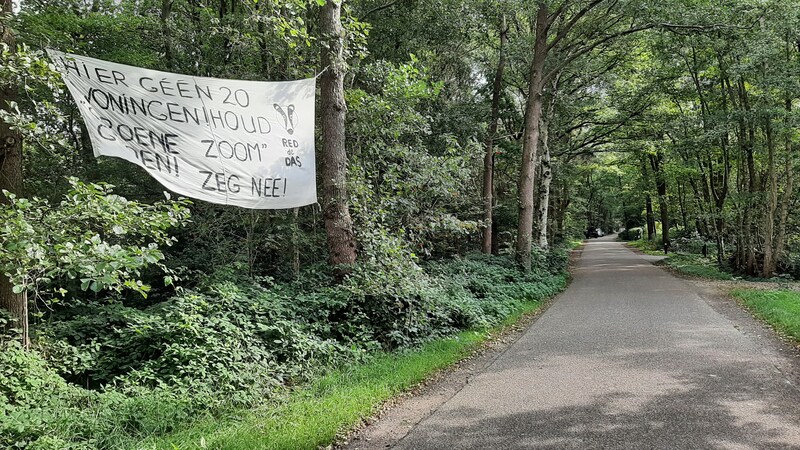 HIER GEEN 20
WONINGEN! HOUD
GROENE ZOOM"
ZEG NEE!
RED
de
DAS